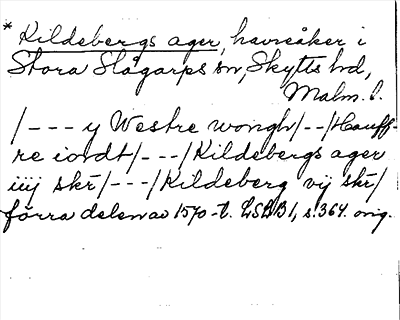 * Kildebergs ager, havreåker i
Stora Slågarps sn, Skytts hd,
Malm. l.
/---y Westre wongh/--/Hauff-
re iordt/---/Kildebergs ager
iiij skr/---/Kildeberg vij skr/
förra delen av 1570-t. LSLB 1, s. 364. orig.